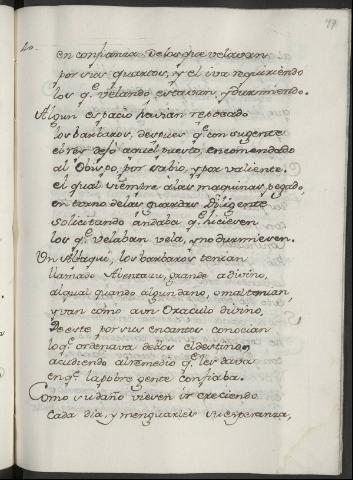 40.
79
en confianza de los que velavan
por sus quartos, y el iva requiriendo
los q.e velando estavan, y durmiendo.
Algun espacio havian reposado
los barbaros, despues q.e con su gente
el rey dejó aquel puesto, encomendado
al Obispo, por sabio, y por valiente.
el qual siempre a las maquinas pegado,
en torno de las guardas diligente
solicitando andaba q.e hiciesen
los q.e velaban vela, y no durmiesen.
Un los barbaros tenian
llamado grande adivino,
al qual quando algun daño, o mal tenian,
yvan cómo a un Oraculo divino,
de este por sus encantos conocian
lo q.e ordenava de los el destino,
acudiendo al remedio q.e les dava
en q.e la pobre gente confiaba.
Como su daño viesen ir creciendo
cada dia, y menguarles su esperanza,